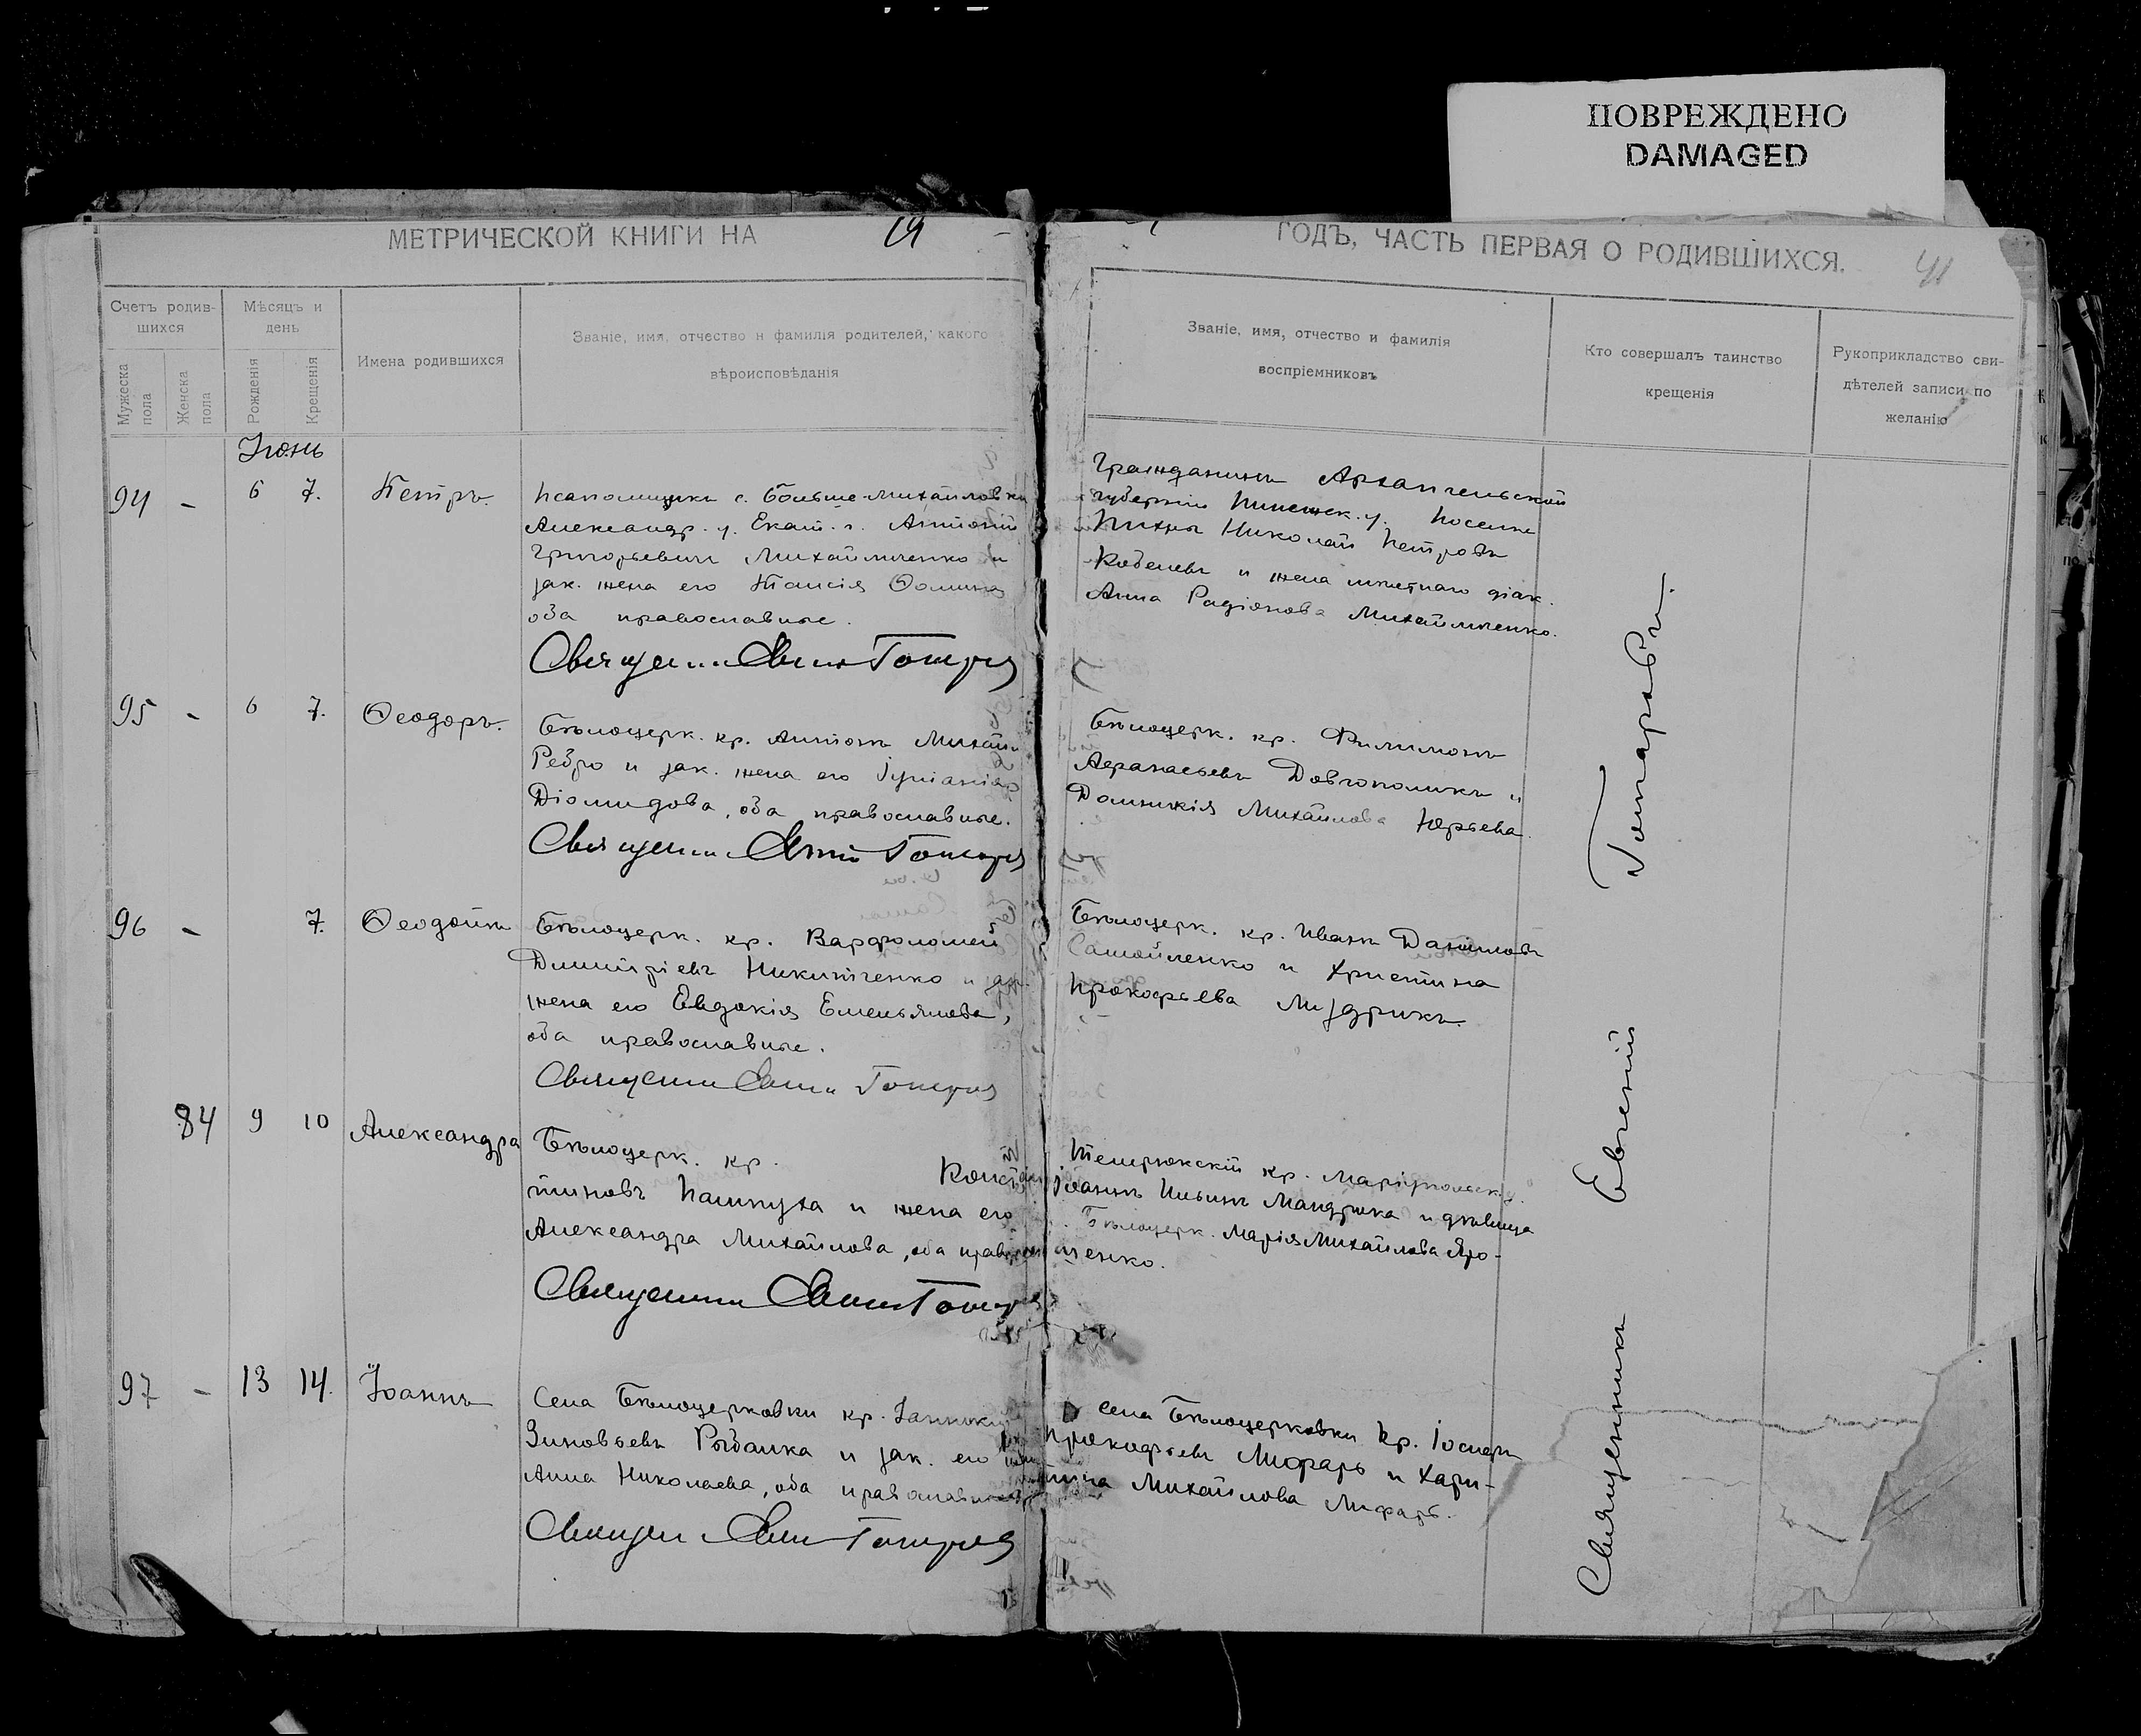 ПОВРЕЖДЕНО
DAMAGED
МЕТРИЧЕСКОЙ КНИГИ НА 19
ГОДЪ, ЧАСТЬ ПЕРВАЯ О РОДИВШИХСЯ.
41
Счетъ родив-
шихся
Мужеска
пола
Женска
пола
Мѣсяцъ и
день
Рожденія
Крещенія
Имена родившихся
Званіе, имя, отчество и фамилія родителей, какого
вѣроисповѣданія
Званіе, имя, отчество и фамилія
воспріемниковъ
Кто совершалъ таинство
крещенія
Рукоприкладство сви-
дѣтелей записи по
желанію
Іюнь
94 - 6 7. Петръ.
Псаломщикъ с. Больше-Михайловки
Александр. у. Екат. г. Антоній
Григорьевичъ Михайличенко и
зак. жена его Таисія Фомина
оба православные.
Гражданинъ Архангельской
губерніи Пинежск. у. поселка
Пихны Николай Петровъ
Кобелевъ и жена мѣстнаго діак.
Анна Радіонова Михайличенко.
95 - 6 7. Ѳеодоръ.
Бѣлоцерк. кр. Антонъ Михайл
Ребро и зак. жена его Іуліанія
Діомидова, оба православные.
Бѣлоцерк. кр. Филимонъ
Аѳанасьевъ Довгополикъ и
Домникія Михайлова Юрьева.
96 - 7. Ѳеодотъ
Бѣлоцерк. кр. Варфоломей
Димитріевъ Никитченко и зак.
жена его Евдокія Емельянова,
оба православные.
Бѣлоцерк. кр. Иванъ Даниловъ
Самойленко и Христина
Прокофьева Миздрикъ.
84 9 10 Александра
Бѣлоцерк. кр. Констан
тиновъ Пашкуха и жена его
Александра Михайлова, оба правосл
Темрюкскій кр. Маріупольск. у.
Іоаннъ Ильинъ Мандрыка и дѣвица
Бѣлоцерк. Марія Михайлова Яро-
шенко.
97 - 13 14. Іоаннъ
Села Бѣлоцерковки кр. Іанникій
Зиновьевъ Рыбалка и зак. его жена
Анна Николаева, оба православные
Села Бѣлоцерковки кр. Іосифъ
Прокофьевъ Лифарь и Хари-
тина Михайлова Лифарь.
Священникъ Евгеній